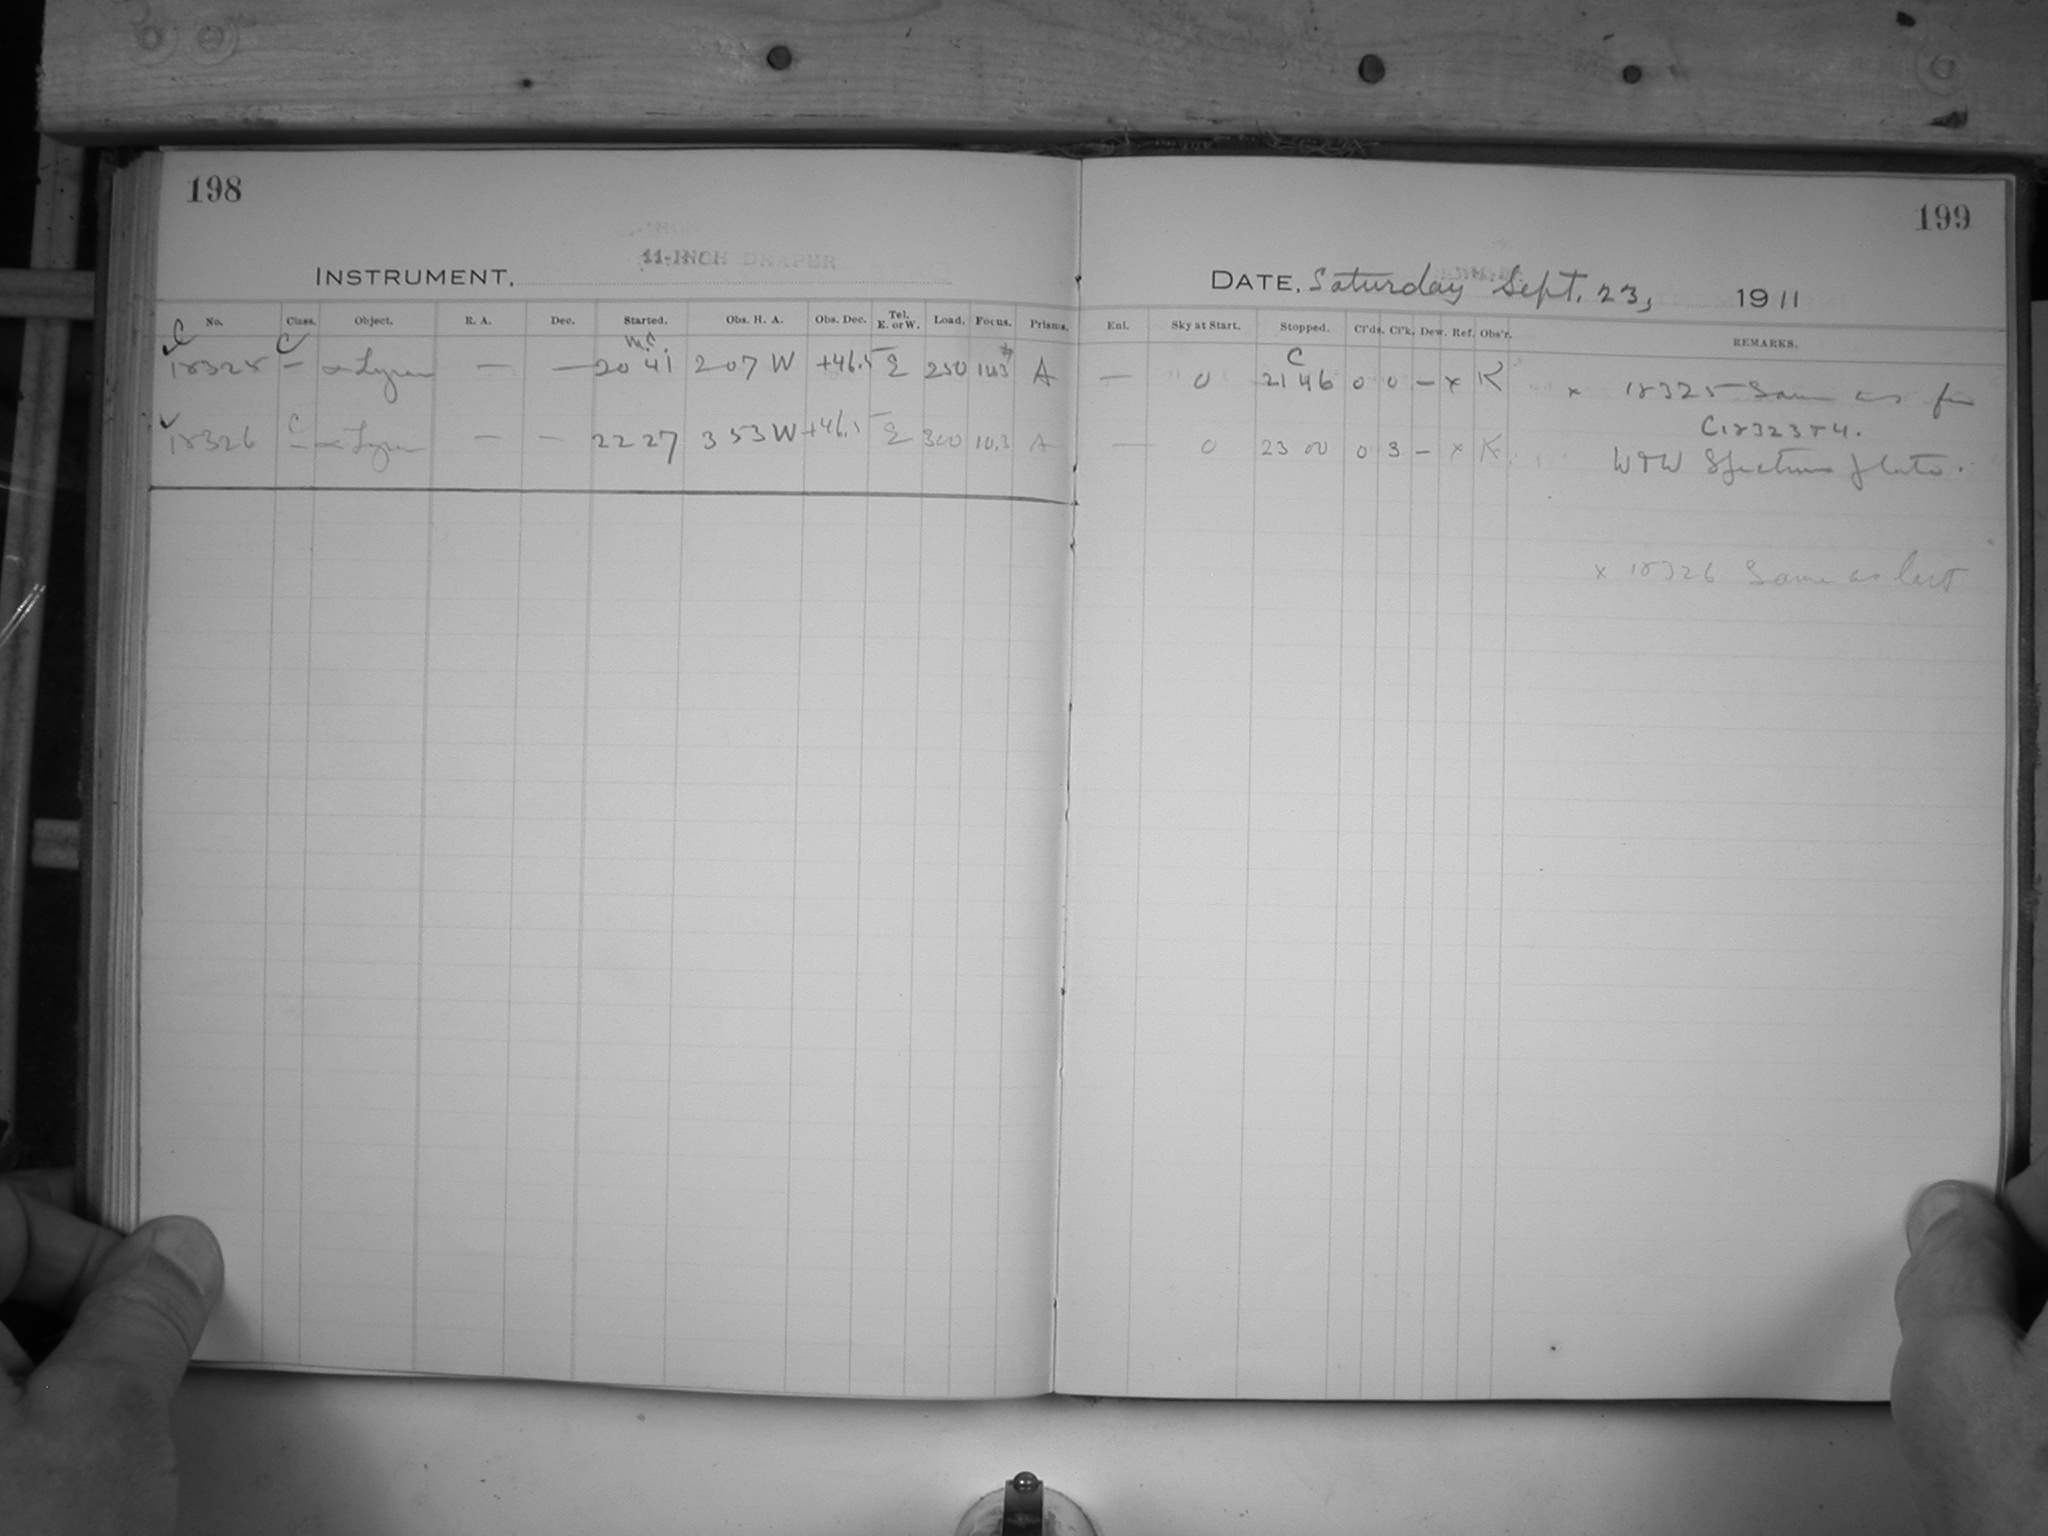 198
199
INSTRUMENT, 11-INCH DRAPER
DATE, Saturday Sept. 23, 1911
No. Class. Object. R. A. Dec. Started. Obs. H. A. Obs. Dec. Tel. E. or W. Load. Focus. Prisms. Enl. Sky at Start. Stopped. Cl'ds. Cl'k. Dew. Ref. Obs'r. REMARKS.
C C M.C. C
18325 – α Lyrae — — 20 41 2 07 W +46.5 E 250 10.3 A — 0 21 46 0 0 – x K x 18325 Same as for
C18323 & 4.
18326 C – α Lyrae – – 22 27 3 53 W +46.5 E 300 10.3 A — 0 23 00 0 3 – x K W & W Spectrum plate.
x 18326 Same as last